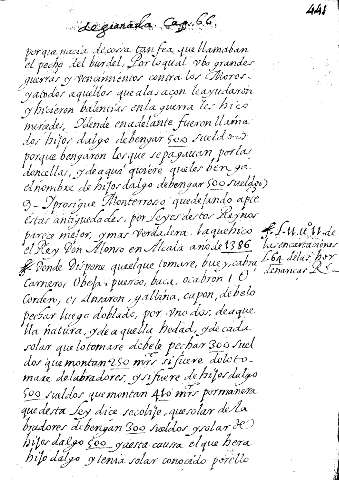 441
Legionada Cap. 66.
porque nacia de cosa tan fea que llamaban
el pecho del burdel, Por lo qual vbo grandes
guerras y vencimientos contra los Moros
y a todos aquellos que a la saçon le ayudaron
y hicieron balencias en la guerra les hiço
mercedes, Dende en adelante fueron llama
dos hijos dalgo de bengar 500 sueldos
porque bengaron los que se pagauan por las
doncellas, y de aqui quiere que les benga
el nombre de hijos dalgo de bengar 500 sueldos
9- Prosigue Monterroso que dejando aparte
estas antiguedades: por leyes destos Reynos
parece mejor, y mas verdadera la que hiço
el Rey Don Alonso en Alcala año de 1386
Donde Dispone, quel que tomare, buey, cabra
Carnero, Obeja, puerco, baca, o cabron
Corden, es Ansaron, y gallina, capon, debelo
pechar luego doblado, por vno dos: de aque
lla natura, y de aquella hedad, y de cada
solar que lo tomare debele pechar 300 suel
dos que montan 250 mrs si fuere
mare de labradores, y si fuere de hijos dalgo
500 sueldos que montan 410 mrs por manera
que desta Ley dice se colije, que solar de la
bradores debengan 300 sueldos y solar de
hijos dalgo 500 y a esta causa el que hera
hijo dalgo y tenia solar conocido por ello
de
las
L. 64 de las hor
denancas Rs